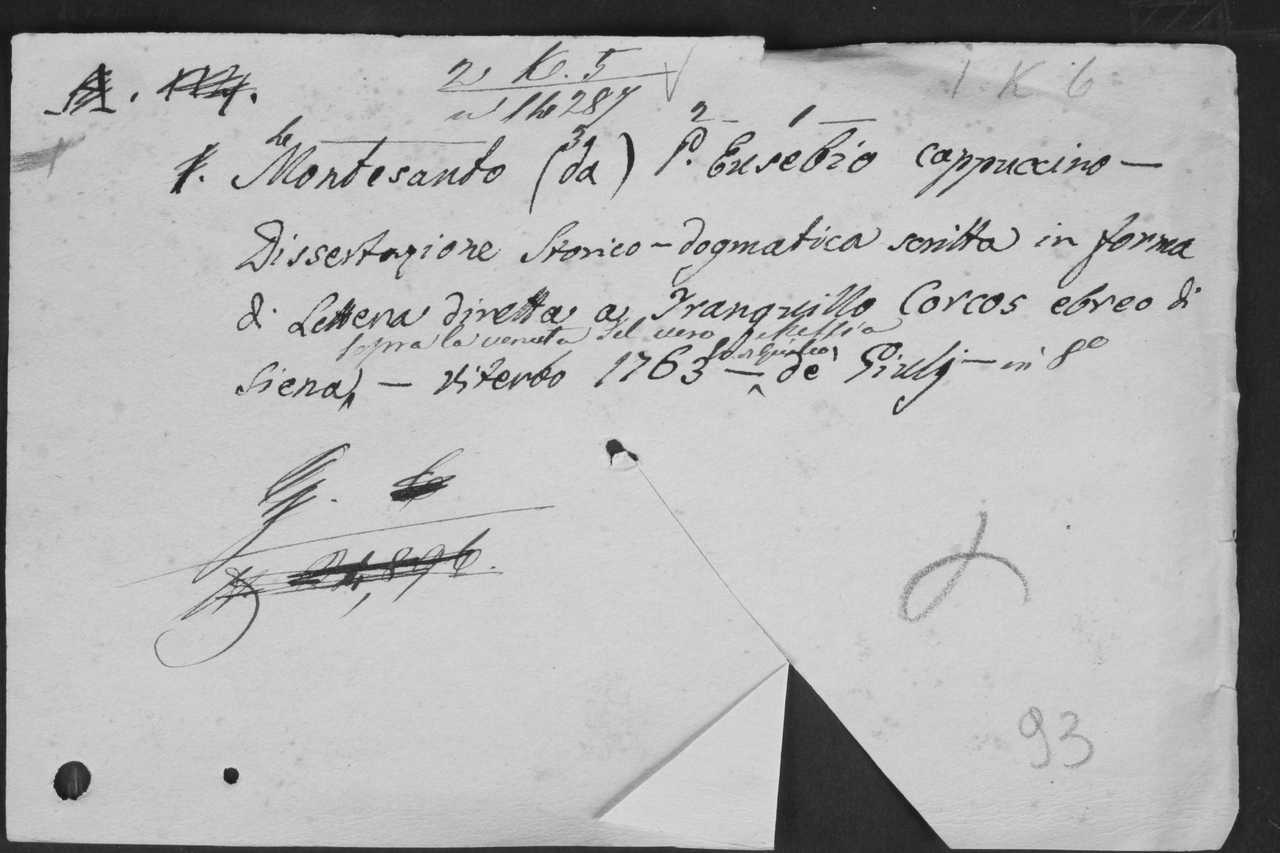 2 K. 5
1 K 6
n 14287
2 — 1 —
1. Montesanto (da) P. Eusebio cappuccino —
Dissertazione storico-dogmatica scritta in forma
di Lettera diretta a Tranquillo Corcos ebreo di
sopra la venuta del vero Messia
Siena, — Viterbo 1763 — de' Giulj — in 8º
G.
93